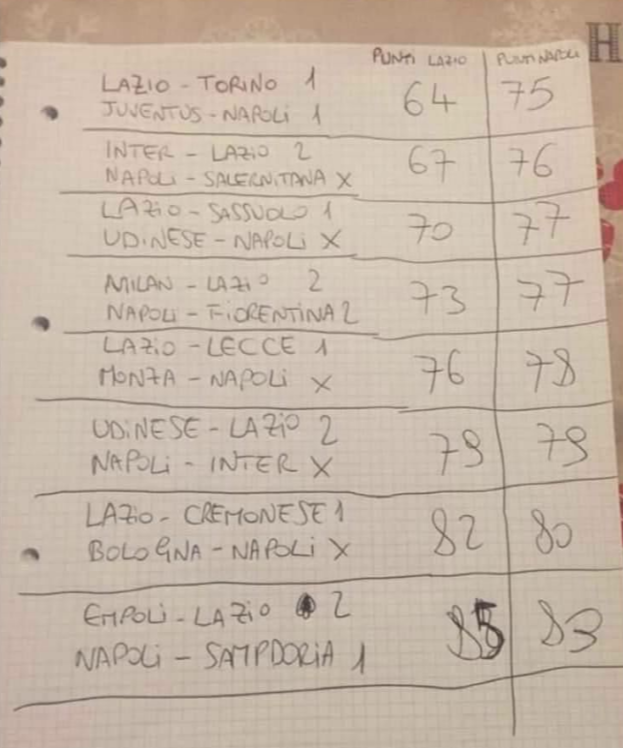 PUNTI LAZIO PUNTI NAPOLI
LAZIO - TORINO 1
JUVENTUS - NAPOLI 1
64 75
INTER - LAZIO 2
NAPOLI - SALERNITANA X
67 76
LAZIO - SASSUOLO 1
UDINESE - NAPOLI X
70 77
MILAN - LAZIO 2
NAPOLI - FIORENTINA 2
73 77
LAZIO - LECCE 1
MONZA - NAPOLI X
76 78
UDINESE - LAZIO 2
NAPOLI - INTER X
79 79
LAZIO - CREMONESE 1
BOLOGNA - NAPOLI X
82 80
EMPOLI - LAZIO 2
NAPOLI - SAMPDORIA 1
85 83
H